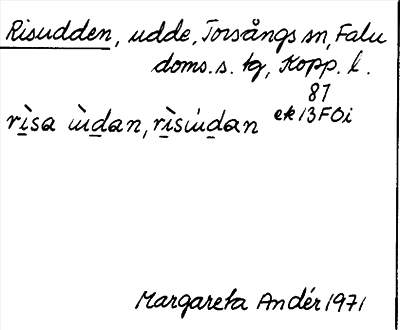 Risudden, udde, Torsångs sn, Falu
doms. s. tg, Kopp. l.
87
ek 13F0i
rìsa ùdan, rìsùdan
Margareta Andér 1971